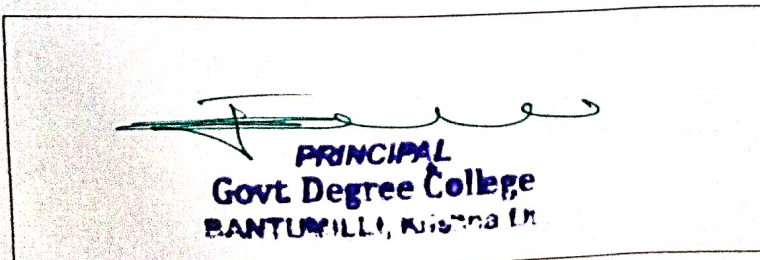 PRINCIPAL
Govt Degree College
BANTUMILLI, Krishna Dt